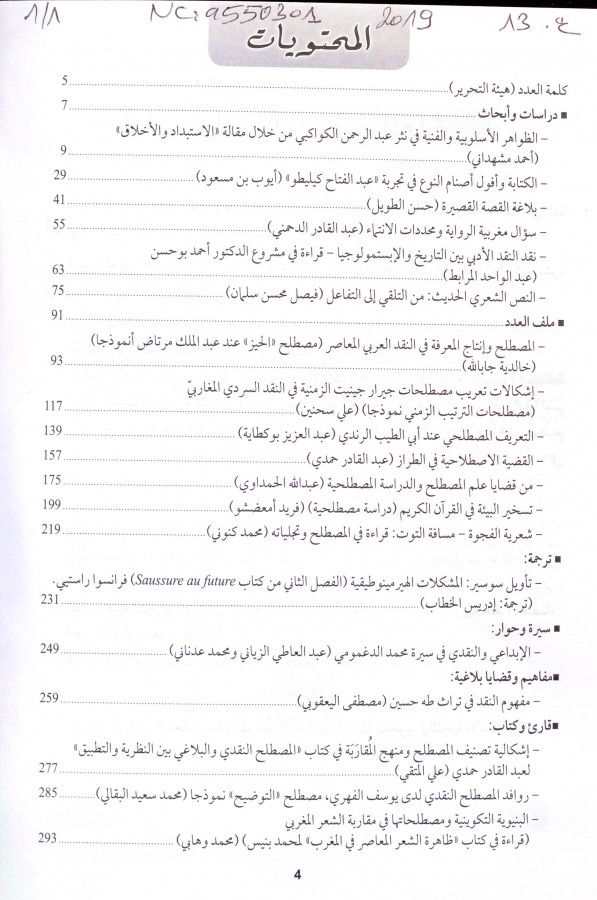 1/1 NC: a550301 2019 13 .ع
المحتويات
كلمة العدد (هيئة التحرير) 5
■ دراسات وأبحاث 7
– الظواهر الأسلوبية والفنية في نثر عبد الرحمن الكواكبي من خلال مقالة «الاستبداد والأخلاق»
(أحمد مشهداني) 9
– الكتابة وأفول أصنام النوع في تجربة «عبد الفتاح كيليطو» (أيوب بن مسعود) 29
– بلاغة القصة القصيرة (حسن الطويل) 41
– سؤال مغربية الرواية ومحددات الانتماء (عبد القادر الدحمني) 55
– نقد النقد الأدبي بين التاريخ والإبستمولوجيا – قراءة في مشروع الدكتور أحمد بوحسن
(عبد الواحد المرابط) 63
– النص الشعري الحديث: من التلقي إلى التفاعل (فيصل محسن سلمان) 75
■ ملف العدد 91
– المصطلح وإنتاج المعرفة في النقد العربي المعاصر (مصطلح «الحيز» عند عبد الملك مرتاض أنموذجا)
(خالدية جابالله) 93
– إشكالات تعريب مصطلحات جيرار جينيت الزمنية في النقد السردي المغاربيّ
(مصطلحات الترتيب الزمني نموذجا) (علي سحنين) 117
– التعريف المصطلحي عند أبي الطيب الرندي (عبد العزيز بوكطاية) 139
– القضية الاصطلاحية في الطراز (عبد القادر حمدي) 157
– من قضايا علم المصطلح والدراسة المصطلحية (عبدالله الحمداوي) 175
– تسخير البيئة في القرآن الكريم (دراسة مصطلحية) (فريد أمعضشو) 199
– شعرية الفجوة – مسافة التوت: قراءة في المصطلح وتجلياته (محمد كنوني) 219
■ ترجمة:
– تأويل سوسير: المشكلات الهيرمينوطيقية (الفصل الثاني من كتاب Saussure au future) فرانسوا راستيي.
(ترجمة: إدريس الخطاب) 231
■ سيرة وحوار:
– الإبداعي والنقدي في سيرة محمد الدغمومي (عبد العاطي الزياني ومحمد عدناني) 249
■مفاهيم وقضايا بلاغية:
– مفهوم النقد في تراث طه حسين (مصطفى اليعقوبي) 259
■قارئ وكتاب:
– إشكالية تصنيف المصطلح ومنهج المُقارَبَة في كتاب «المصطلح النقدي والبلاغي بين النظرية والتطبيق»
لعبد القادر حمدي (علي المتقي) 277
– روافد المصطلح النقدي لدى يوسف الفهري، مصطلح «التوضيح» نموذجا (محمد سعيد البقالي) 285
– البنيوية التكوينية ومصطلحاتها في مقاربة الشعر المغربي
(قراءة في كتاب «ظاهرة الشعر المعاصر في المغرب» لمحمد بنيس) (محمد وهابي) 293
4